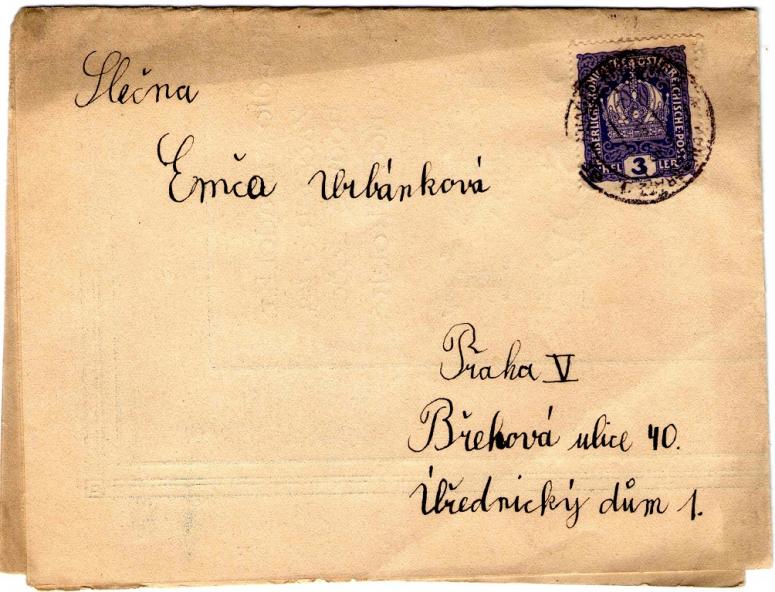 Slečna
Emča Urbánková
Praha V
Břehová ulice 40.
Úřednický dům 1.
KAISERLICHE KÖNIGLICHE ÖSTERREICHISCHE POST
3
HELLER